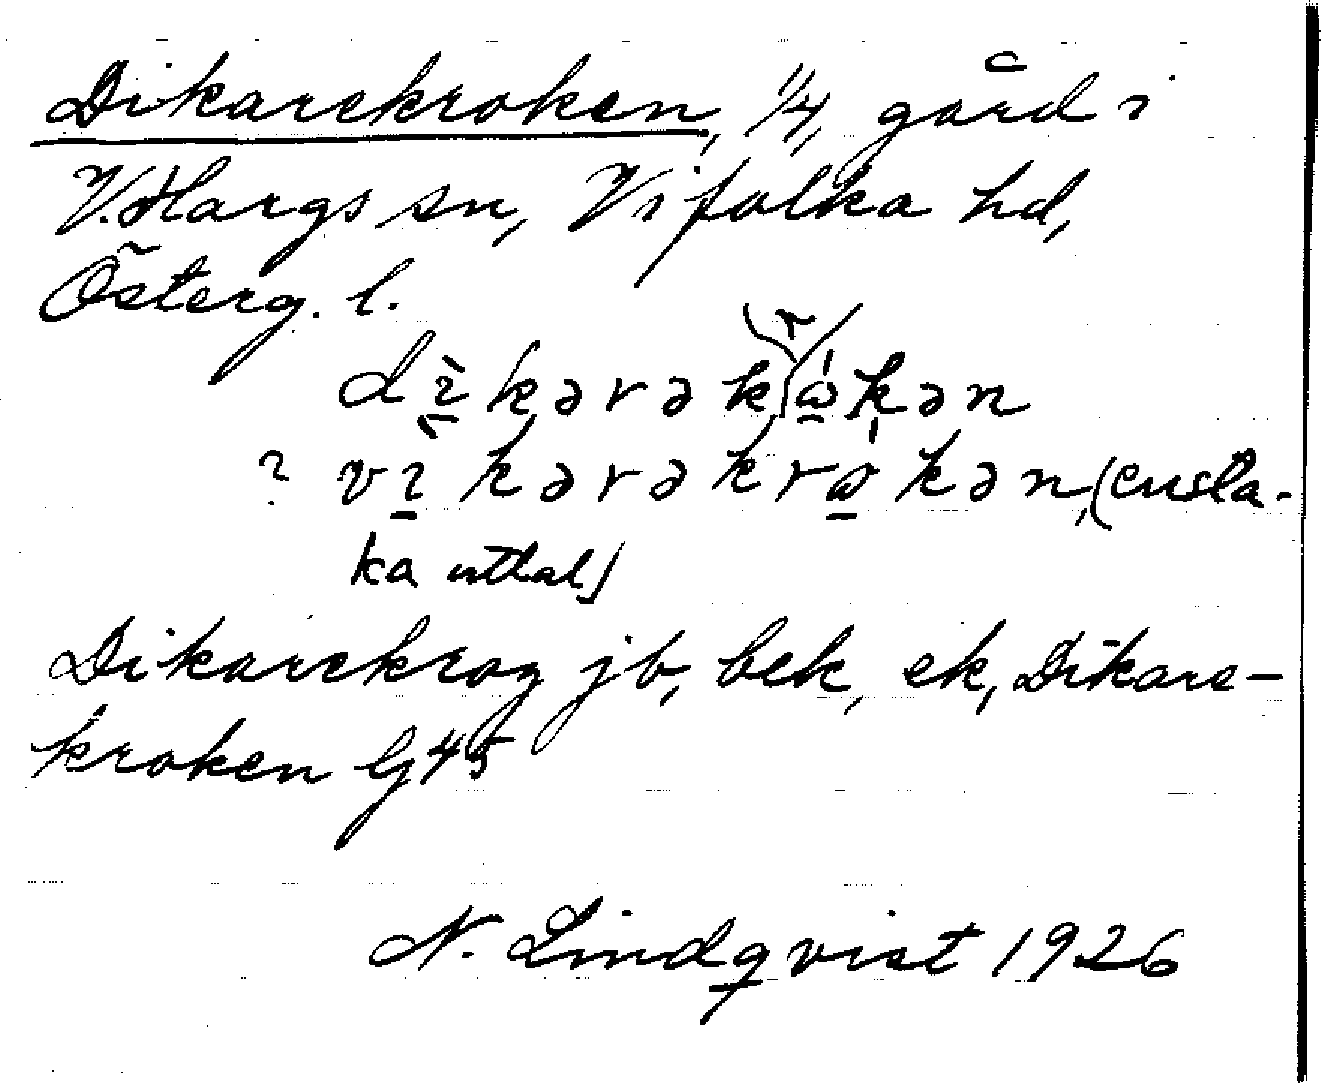 Dikarekroken, 1/4, gård i
V. Hargs sn, Vifolka hd,
Österg. l.
dì̱kərəkrώ̱kən
? vì̱kərəkrώ̱kən, (ensta-
ka uttal)
Dikarekrog jb, bek, ek, Dikare-
kroken G 45
N. Lindqvist 1926